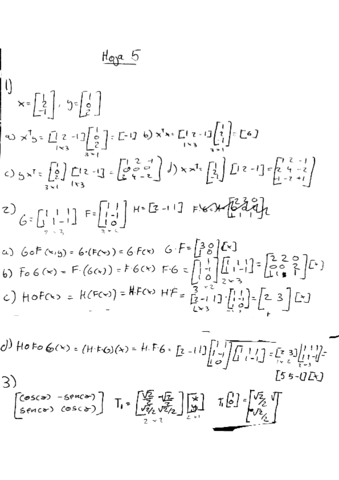 Hoja 5
1)
x = [1 2 -1], y = [1 0 2]
a) xᵀy = [1 2 -1] [1 0 2] = [-1] b) xᵀx = [1 2 -1] [1 2 -1] = [6]
1x3 3x1
c) yxᵀ = [1 0 2] [1 2 -1] = [1 2 -1 0 0 0 2 4 -2] d) xxᵀ = [1 2 -1] [1 2 -1] = [1 2 -1 2 4 -2 -1 -2 1]
3x1 1x3
2)
G = [1 1 1 1 1 -1] F = [1 1 1 -1 1 0] H = [3 -1 1]
a) GoF(x,y) = G·(F(x)) = G·F(x) G·F = [3 0 1 0] [x]
b) FoG(x) = F·(G(x)) = F·G(x) F·G = [1 1 1 -1 1 0] [1 1 1 1 1 -1] = [2 2 0 0 0 2 1 1 1] [x]
c) HoF(x) = H(F(x)) = H·F(x) H·F = [3 -1 1] [1 1 1 -1 1 0] = [2 3] [x]
d) HoFoG(x) = (H·F·G)(x) = H·F·G = [2 -1 1] [1 1 1 -1 1 0] [1 1 1 1 1 -1] = [2 3] [1 1 1 1 1 -1] =
[5 5 -1] [x]
3)
[cos(α) -sen(α) sen(α) cos(α)] T₁ = [√2/2 -√2/2 √2/2 √2/2] [x y] T₁ [1 0] = [√2/2 √2/2]